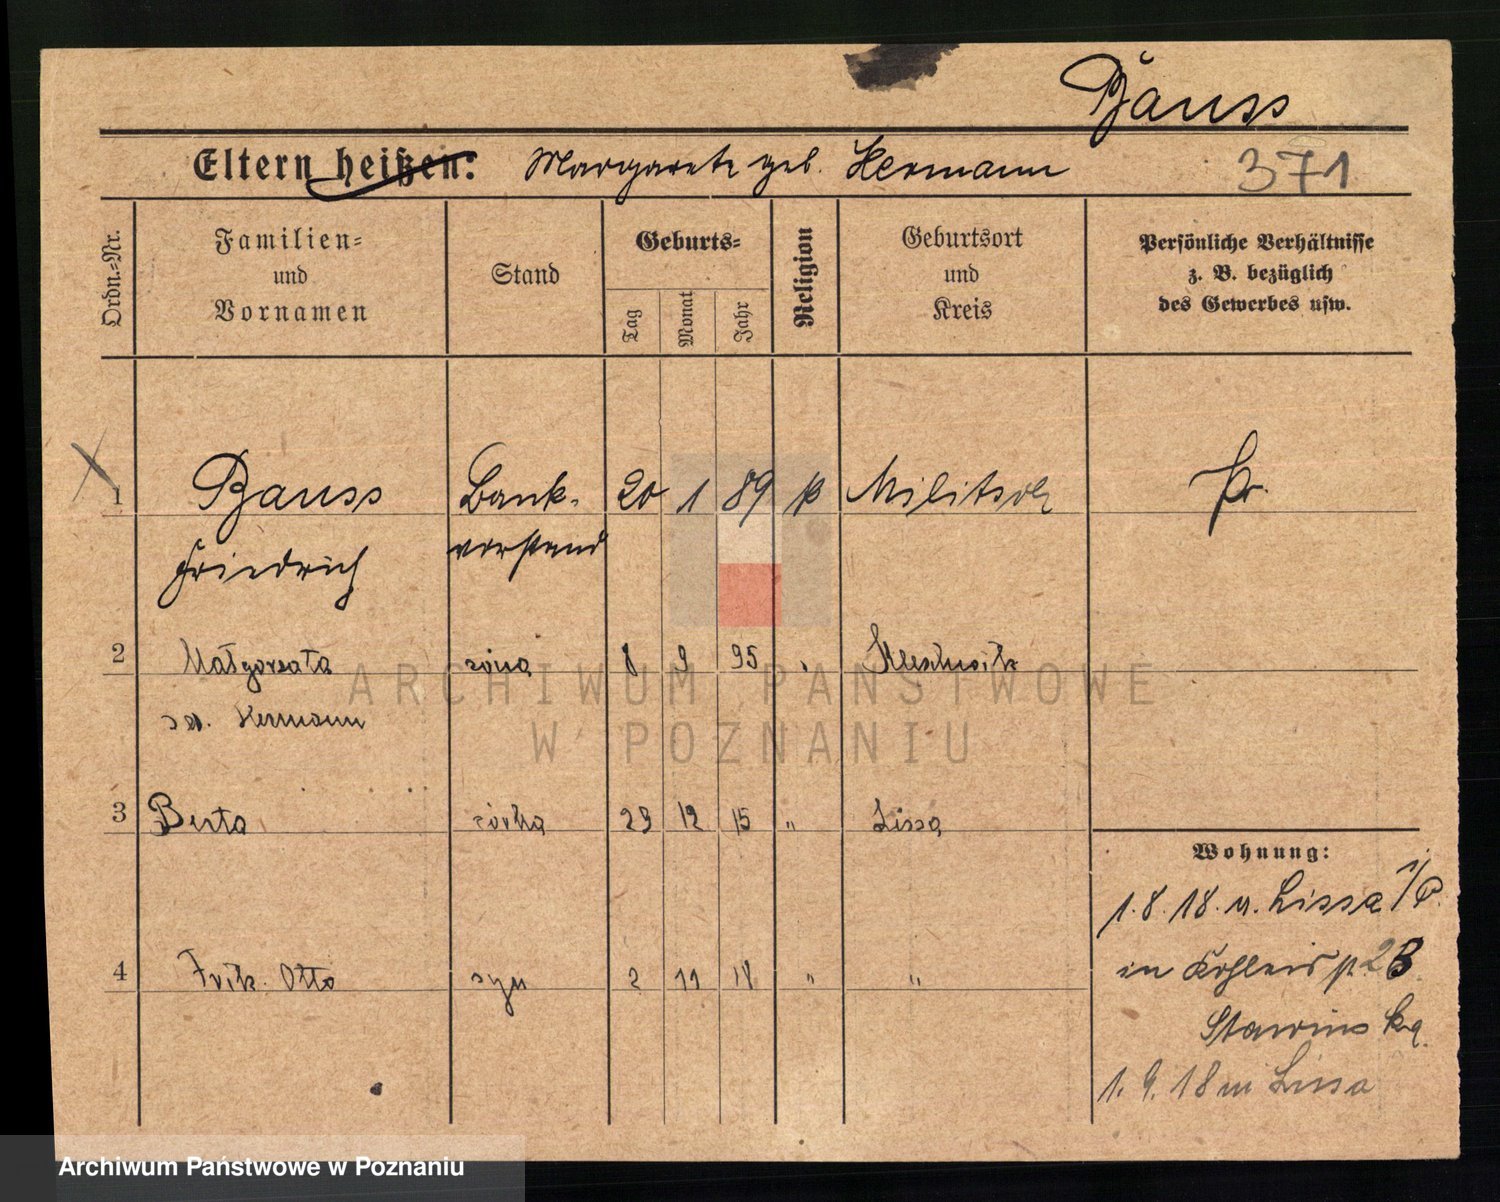 Bauss
Eltern heißen: Margarete geb. Hermann
371
Ordn.-Nr.
Familien-
und
Vornamen
Stand
Geburts-
Tag
Monat
Jahr
Religion
Geburtsort
und
Kreis
Persönliche Verhältnisse
z. B. bezüglich
des Gewerbes usw.
1 Bauss Bank- 20 1 89 Militsch Pr.
Friedrich vorstand
2 Małgorzata żona 8 9 95
Hermann
3 Berta córka 23 12 15 " Lissa
4 Fritz Otto syn 2 11 18 " "
Wohnung:
1.8.18. Lissa i/P.
in
1.9.18 Lissa
ARCHIWUM PAŃSTWOWE
W POZNANIU
Archiwum Państwowe w Poznaniu